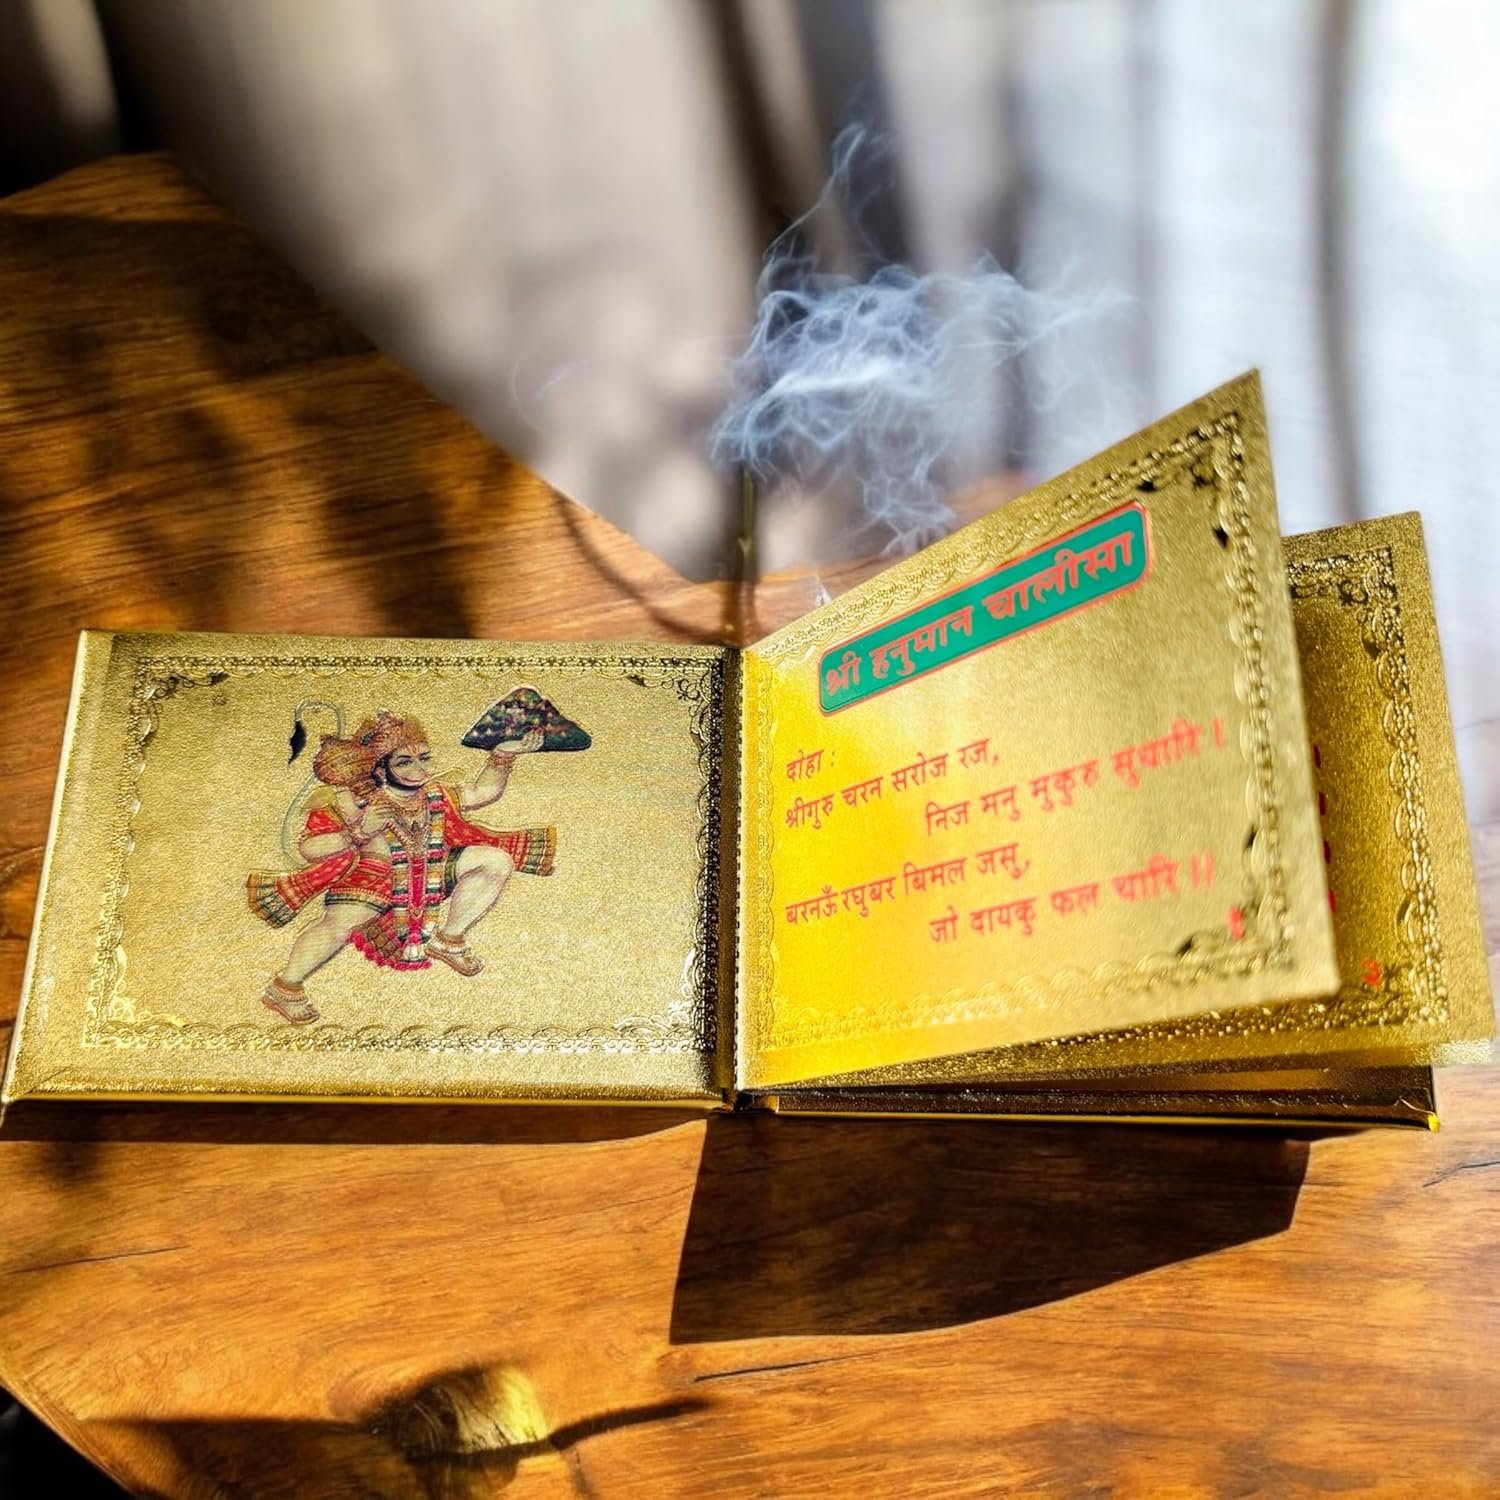 श्री हनुमान चालीसा
दोहा :
श्रीगुरु चरन सरोज रज,
निज मनु मुकुरु सुधारि ।
बरनऊँ रघुबर बिमल जसु,
जो दायकु फल चारि ।।